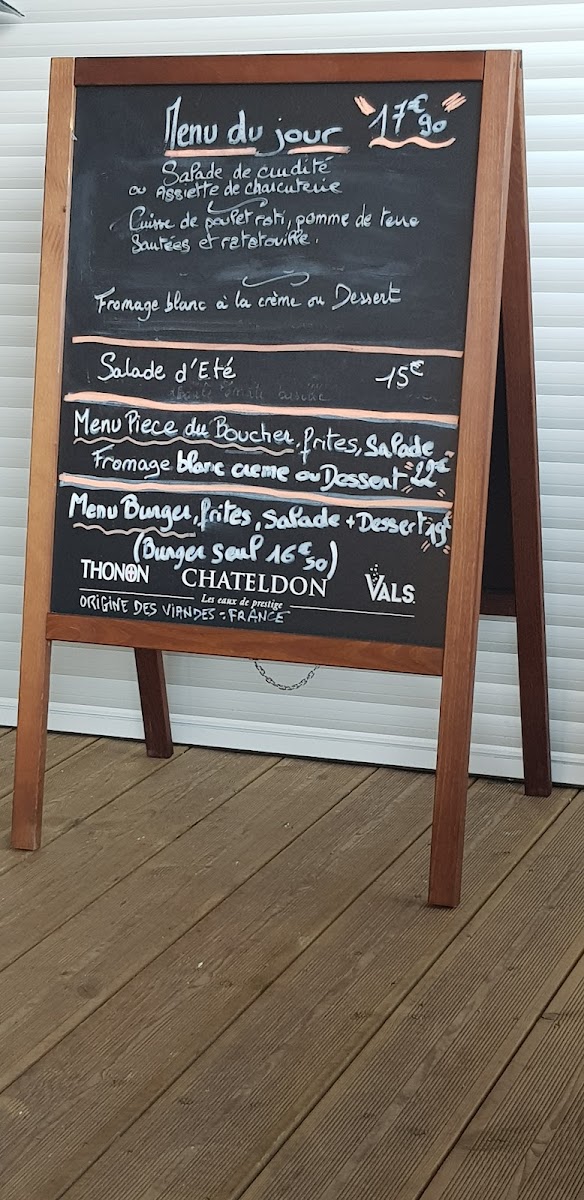 Menu du jour 17€90
Salade de crudité
ou Assiette de charcuterie
Cuisse de poulet roti, pomme de terre
Sautées et ratatouille.
Fromage blanc à la crème ou Dessert
Salade d'Eté 15€
Menu Piece du Boucher, frites, Salade
Fromage blanc creme ou Dessert 22€
Menu Burger, frites, Salade + Dessert 19€
(Burger seul 16€50)
THONON CHATELDON VALS
Les eaux de prestige
ORIGINE DES VIANDES - FRANCE